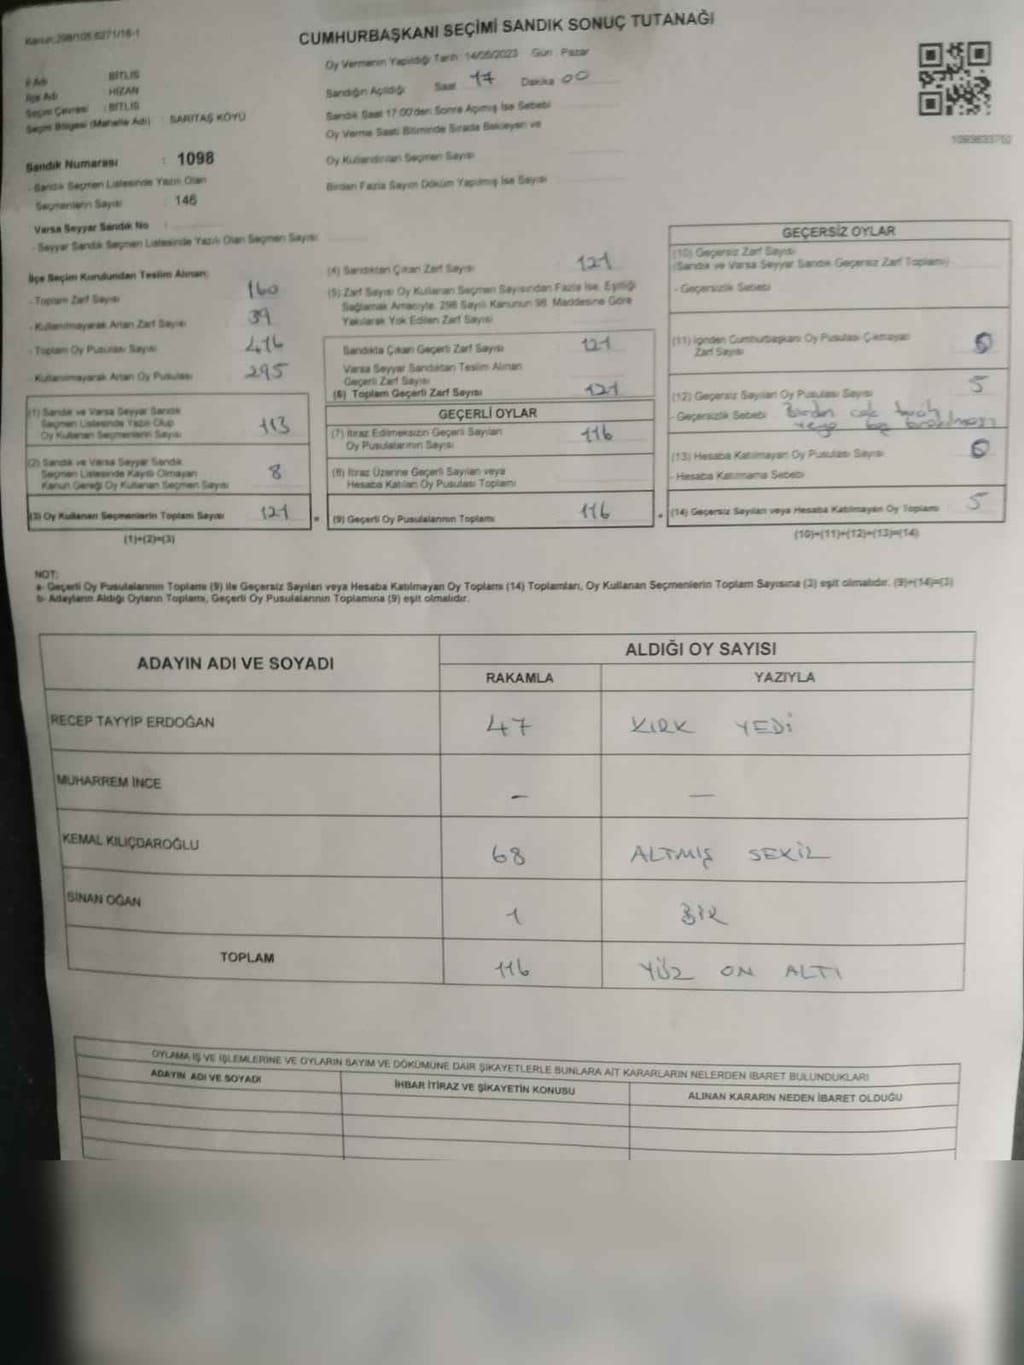 Kanun:298/105,6271/16-1
CUMHURBAŞKANI SEÇİMİ SANDIK SONUÇ TUTANAĞI
Oy Vermenin Yapıldığı Tarih :14/05/2023 Gün : Pazar
İl Adı BİTLİS
İlçe Adı HİZAN
Seçim Çevresi : BİTLİS
Seçim Bölgesi (Mahalle Adı) : SARITAŞ KÖYÜ
Sandığın Açıldığı Saat 17 Dakika 00
Sandık Saat 17:00'den Sonra Açımış İse Sebebi
Oy Verme Saati Bitiminde Sırada Bekleyen ve
Oy Kullandırılan Seçmen Sayısı
Birden Fazla Sayım Döküm Yapılmış İse Sayısı
Sandık Numarası : 1098
- Sandık Seçmen Listesinde Yazılı Olan
Seçmenlerin Sayısı : 146
Varsa Seyyar Sandık No :
- Seyyar Sandık Seçmen Listesinde Yazılı Olan Seçmen Sayısı:
İlçe Seçim Kurulundan Teslim Alınan:
- Toplam Zarf Sayısı 160
- Kullanılmayarak Artan Zarf Sayısı 39
- Toplam Oy Pusulası Sayısı 416
- Kullanılmayarak Artan Oy Pusulası 295
(1) Sandık ve Varsa Seyyar Sandık
Seçmen Listesinde Yazılı Olup
Oy Kullanan Seçmenlerin Sayısı 113
(2) Sandık ve Varsa Seyyar Sandık
Seçmen Listesinde Kayıtlı Olmayan
Kanun Gereği Oy Kullanan Seçmen Sayısı 8
(3) Oy Kullanan Seçmenlerin Toplam Sayısı 121
(1)+(2)=(3)
(4) Sandıktan Çıkan Zarf Sayısı 121
(5) Zarf Sayısı Oy Kullanan Seçmen Sayısından Fazla İse, Eşitliği
Sağlamak Amacıyla, 298 Sayılı Kanunun 98. Maddesine Göre
Yakılarak Yok Edilen Zarf Sayısı
Sandıkta Çıkan Geçerli Zarf Sayısı 121
Varsa Seyyar Sandıktan Teslim Alınan
Geçerli Zarf Sayısı
(6) Toplam Geçerli Zarf Sayısı 121
GEÇERLİ OYLAR
(7) İtiraz Edilmeksizin Geçerli Sayılan
Oy Pusulalarının Sayısı 116
(8) İtiraz Üzerine Geçerli Sayılan veya
Hesaba Katılan Oy Pusulası Toplamı
= (9) Geçerli Oy Pusulalarının Toplamı 116
GEÇERSİZ OYLAR
(10) Geçersiz Zarf Sayısı
(Sandık ve Varsa Seyyar Sandık Geçersiz Zarf Toplamı)
- Geçersizlik Sebebi
(11) İçinden Cumhurbaşkanı Oy Pusulası Çıkmayan
Zarf Sayısı 0
(12) Geçersiz Sayılan Oy Pusulası Sayısı 5
- Geçersizlik Sebebi Birden çok tercih
veya boş bırakılması
(13) Hesaba Katılmayan Oy Pusulası Sayısı 0
- Hesaba Katılmama Sebebi
+ (14) Geçersiz Sayılan veya Hesaba Katılmayan Oy Toplamı 5
(10)+(11)+(12)+(13)=(14)
NOT:
a- Geçerli Oy Pusulalarının Toplamı (9) ile Geçersiz Sayılan veya Hesaba Katılmayan Oy Toplamı (14) Toplamları, Oy Kullanan Seçmenlerin Toplam Sayısına (3) eşit olmalıdır. (9)+(14)=(3)
b- Adayların Aldığı Oyların Toplamı, Geçerli Oy Pusulalarının Toplamına (9) eşit olmalıdır.
ADAYIN ADI VE SOYADI ALDIĞI OY SAYISI
RAKAMLA YAZIYLA
RECEP TAYYİP ERDOĞAN 47 KIRK YEDİ
MUHARREM İNCE - -
KEMAL KILIÇDAROĞLU 68 ALTMIŞ SEKİZ
SİNAN OĞAN 1 BİR
TOPLAM 116 YÜZ ON ALTI
OYLAMA İŞ VE İŞLEMLERİNE VE OYLARIN SAYIM VE DÖKÜMÜNE DAİR ŞİKAYETLERLE BUNLARA AİT KARARLARIN NELERDEN İBARET BULUNDUKLARI
ADAYIN ADI VE SOYADI İHBAR İTİRAZ VE ŞİKAYETİN KONUSU ALINAN KARARIN NEDEN İBARET OLDUĞU